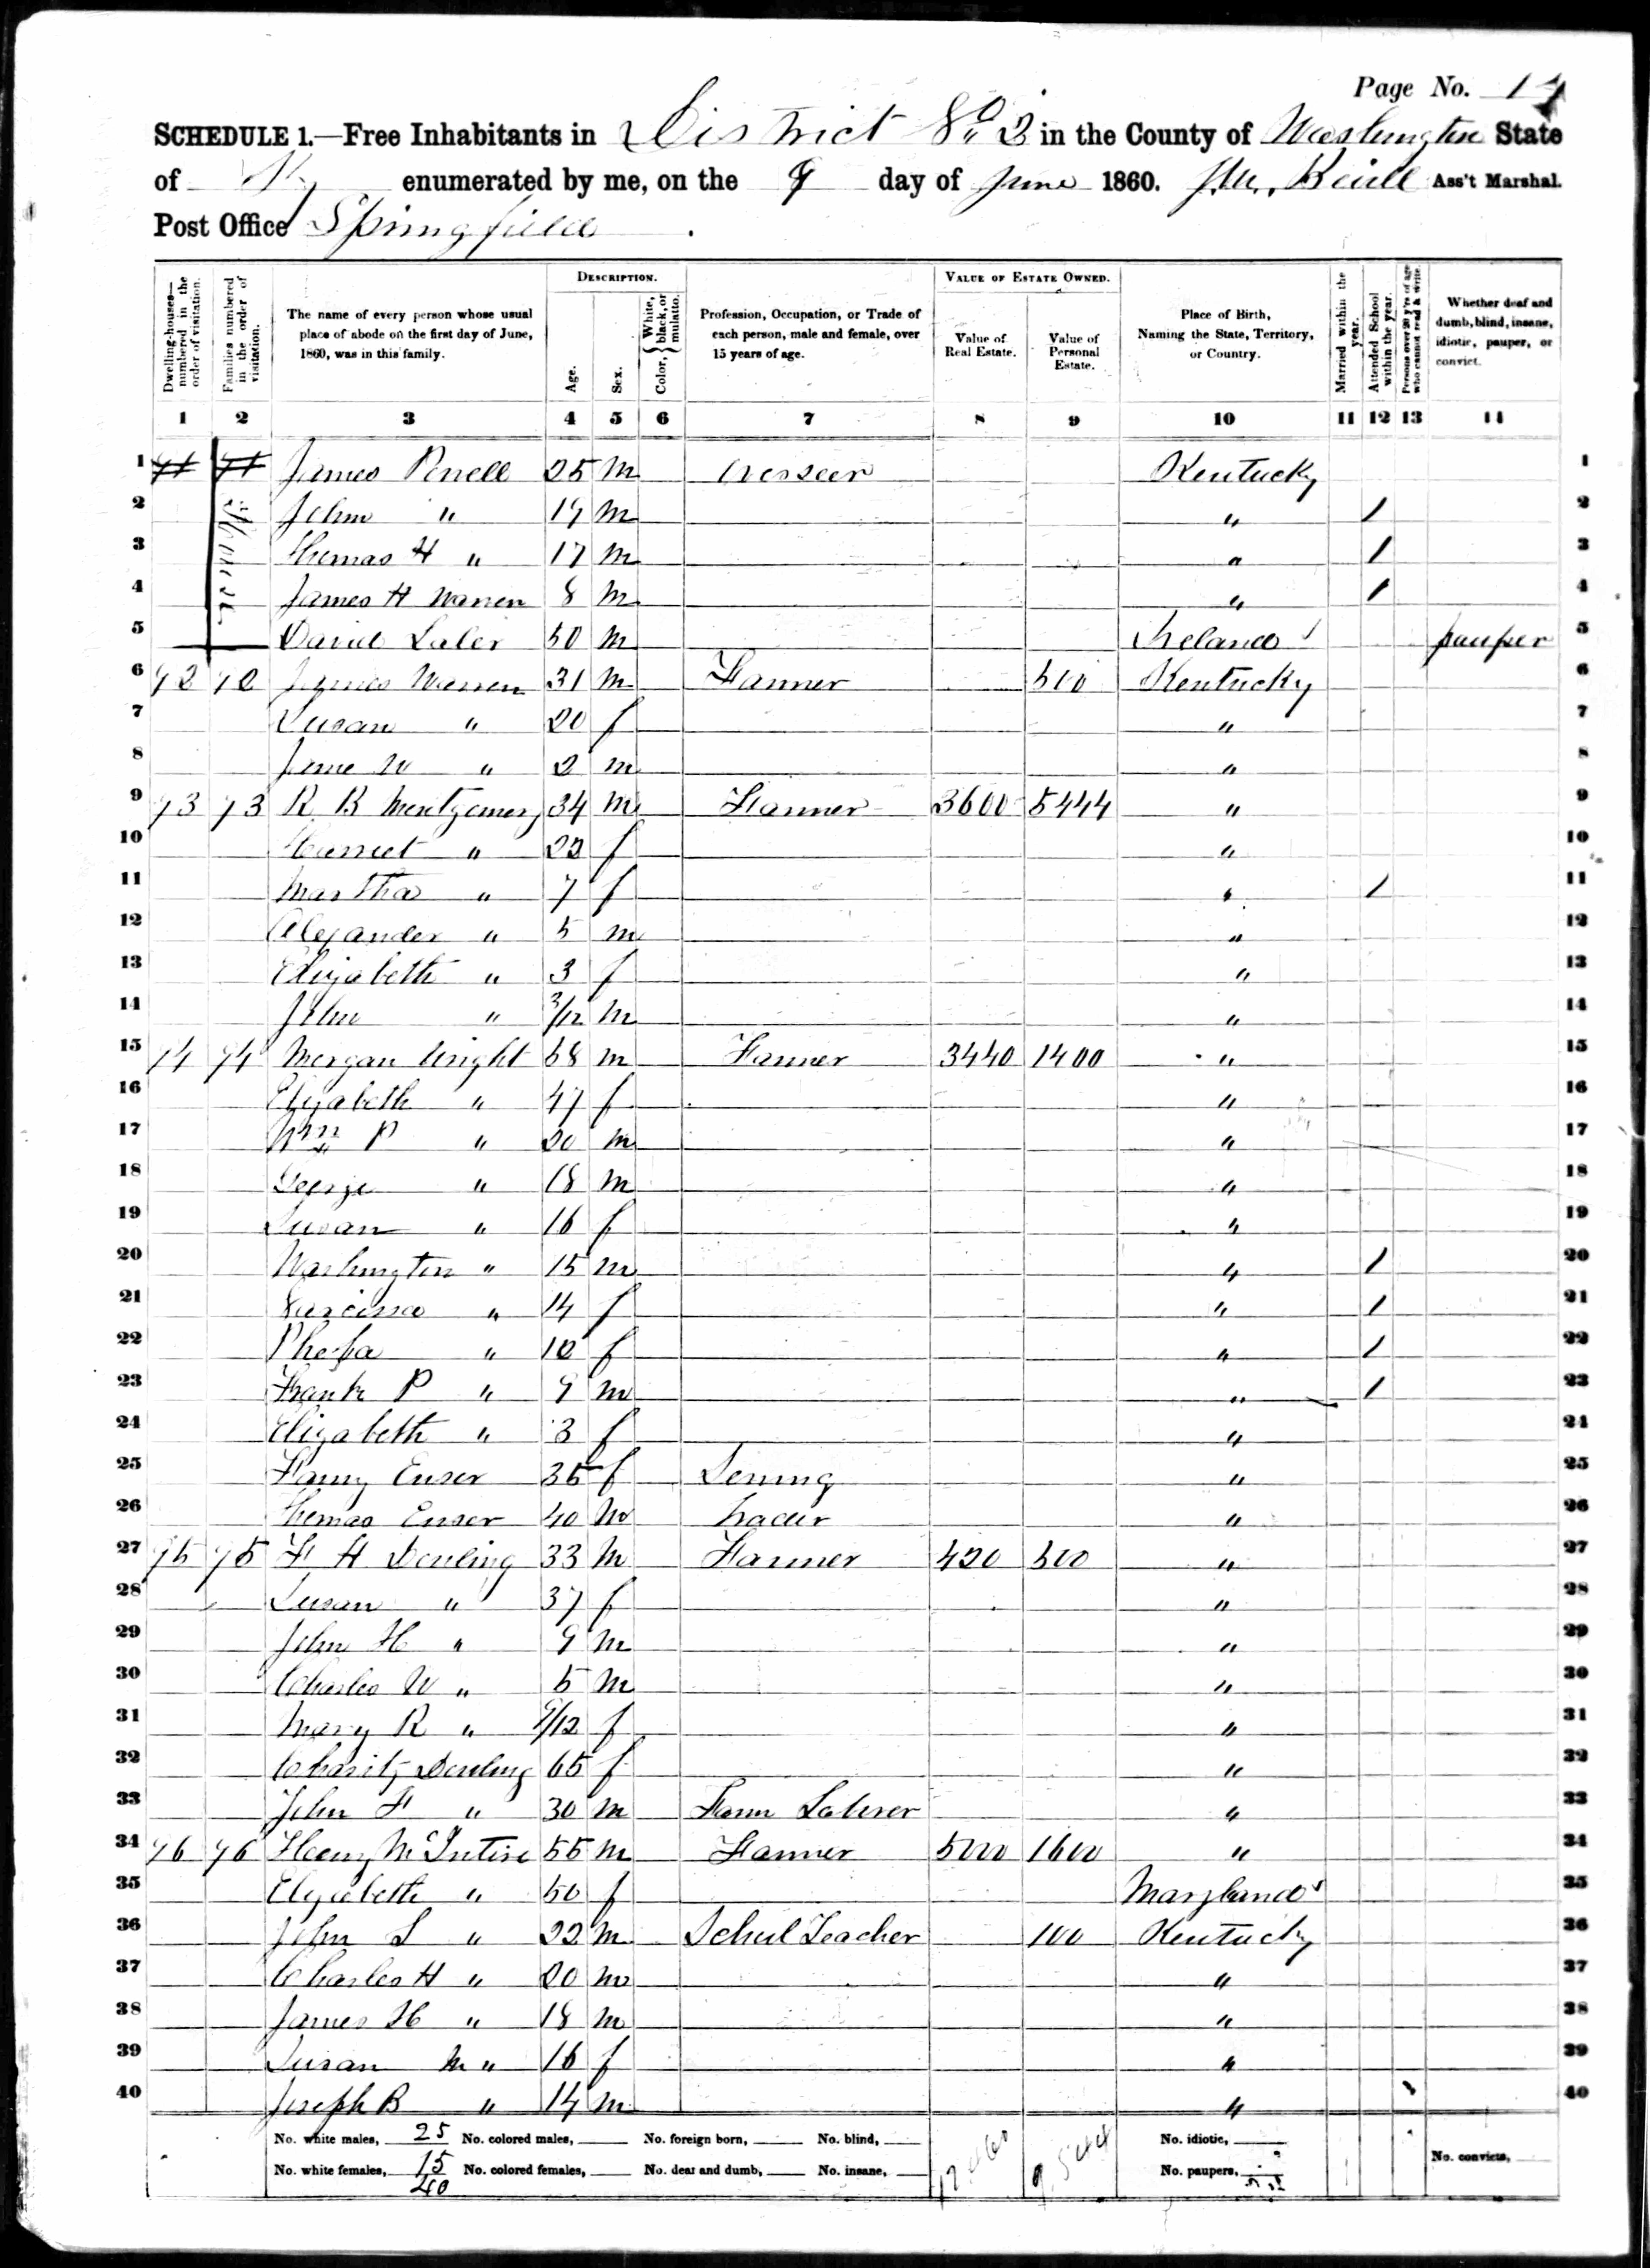 Page No. 14
SCHEDULE 1.—Free Inhabitants in District No. 2 in the County of Washington State
of Ky enumerated by me, on the 9 day of June 1860. Ass't Marshal.
Post Office Springfield
Dwelling-houses—numbered in the order of visitation.
Families numbered in the order of visitation.
The name of every person whose usual place of abode on the first day of June, 1860, was in this family.
DESCRIPTION.
Age.
Sex.
Color, { White, black, or mulatto.
Profession, Occupation, or Trade of each person, male and female, over 15 years of age.
VALUE OF ESTATE OWNED.
Value of Real Estate.
Value of Personal Estate.
Place of Birth, Naming the State, Territory, or Country.
Married within the year.
Attended School within the year.
Persons over 20 y'rs of age who cannot read & write.
Whether deaf and dumb, blind, insane, idiotic, pauper, or convict.
1 2 3 4 5 6 7 8 9 10 11 12 13 14
1 James 25 m Kentucky 1
2 John " 19 m " / 2
3 Thomas H " 17 m " / 3
4 James H Warren 8 m " / 4
5 David Laler 50 m Ireland pauper 5
6 72 72 James Warren 31 m Farmer 500 Kentucky 6
7 Susan " 20 f " 7
8 W " 2 m " 8
9 73 73 R B Montgomery 34 m Farmer 3600 5444 " 9
10 Harriet " 22 f " 10
11 Martha " 7 f " / 11
12 Alexander " 5 m " 12
13 Elizabeth " 3 f " 13
14 John " 3/12 m " 14
15 74 74 Morgan Wright 58 m Farmer 3440 1400 " 15
16 Elizabeth " 47 f " 16
17 Wm P " 20 m " 17
18 George " 18 m " 18
19 Susan " 16 f " 19
20 Washington " 15 m " / 20
21 Narcissa " 14 f " / 21
22 Pheba " 12 f " / 22
23 Frank P " 9 m " / 23
24 Elizabeth " 3 f " 24
25 Fanny Enser 35 f " 25
26 Thomas Enser 40 m " 26
27 75 75 F H Denling 33 m Farmer 420 500 " 27
28 Susan " 37 f " 28
29 John H " 9 m " 29
30 Charles W " 5 m " 30
31 Mary R " 9/12 f " 31
32 Charity Denling 65 f " 32
33 John F " 30 m Farm Laborer " 33
34 76 76 Henry McIntire 55 m Farmer 5000 1600 " 34
35 Elizabeth " 50 f Maryland 35
36 John S " 22 m Schul Teacher 100 Kentucky 36
37 Charles H " 20 m " 37
38 James H " 18 m " 38
39 Susan M " 16 f " 39
40 Joseph B " 14 m " 40
No. white males, 25 No. colored males, No. foreign born, No. blind, No. idiotic,
No. white females, 15 No. colored females, No. deaf and dumb, No. insane, No. paupers, No. convicts,
40